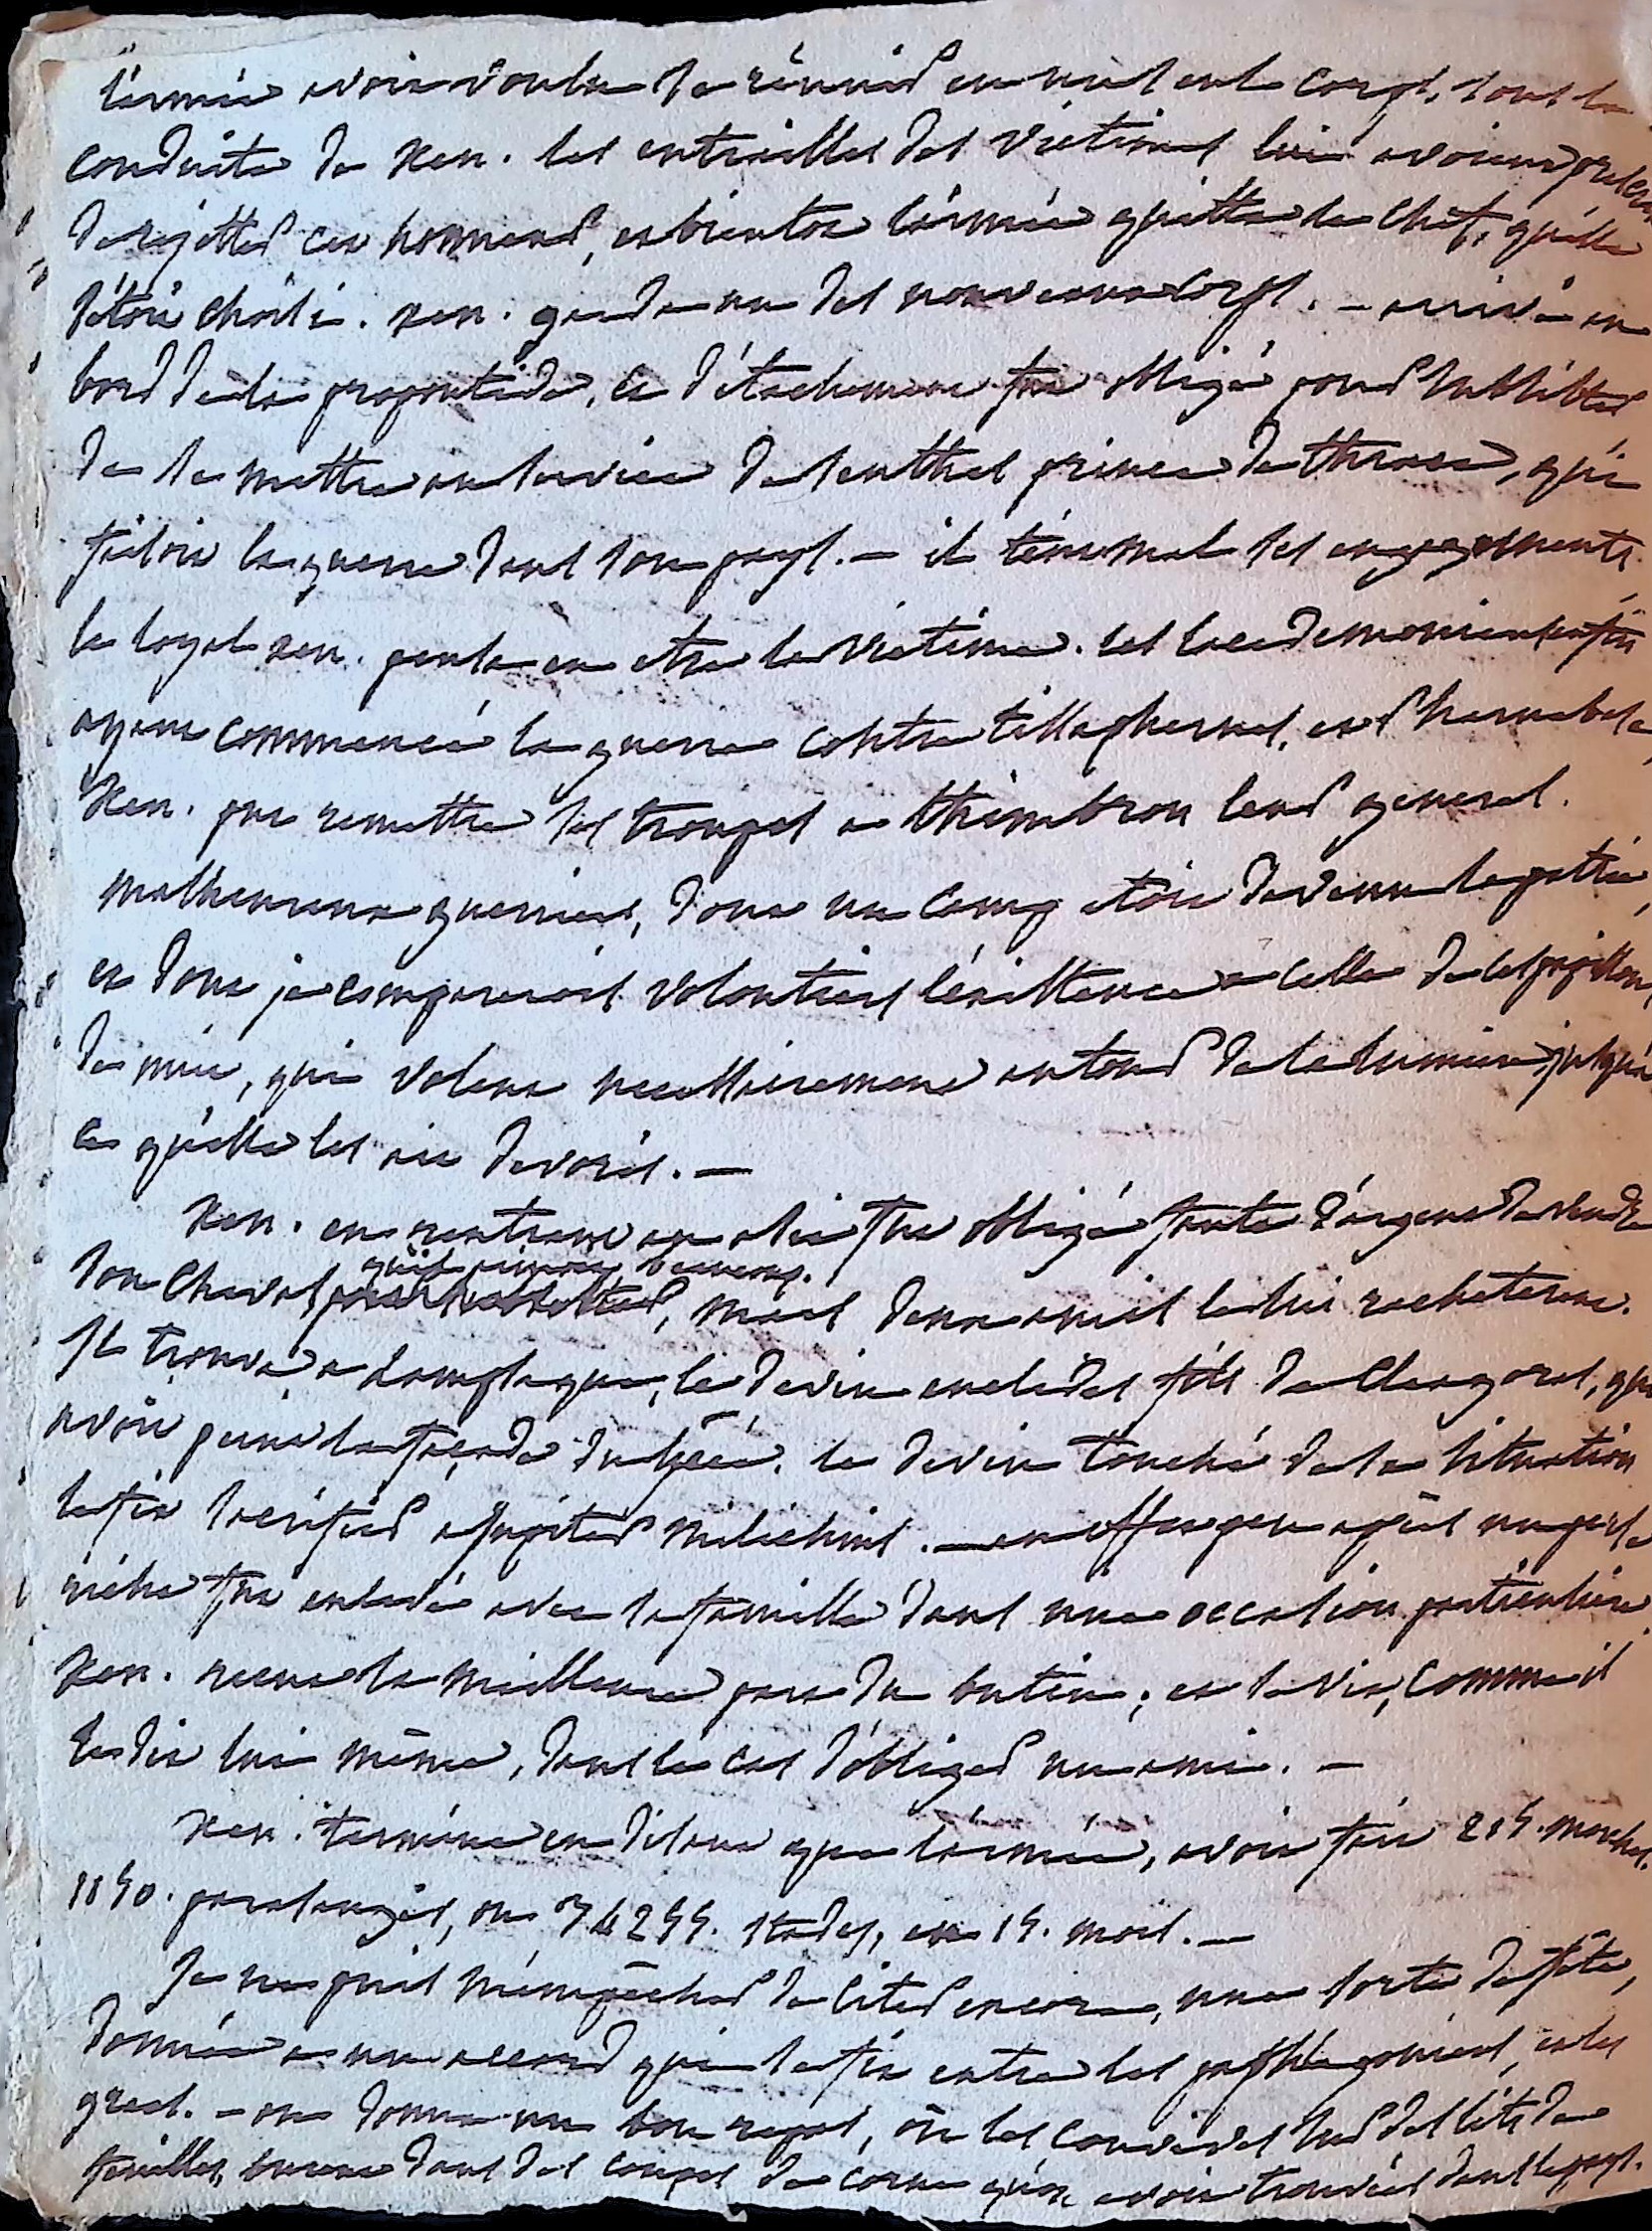 l'armée avoit voulu se réunir en un seul corps, sous la
conduite de Xen. les entrailles des victimes lui avoient prescrit
de rejetter cet honneur, et bientot l'armée quitta le chef, qu'elle
s'étoit choisi. Xen. guida un des nouveaux corps. – arrivé au
bord de la propontide, ce détachement fut obligé pour subsister
de se mettre au service de seuthes prince de thrace, qui
faisoit la guerre dans son pays. – il tint mal ses engagements,
le loyal xen. pensa en etre la victime. les lacedemoniens enfin
ayant commencé la guerre contre tissaphernes, et Pharnabase,
Xen. put remettre ses troupes a thimbron leur general.
malheureux guerriers, dont un camp étoit devenu la patrie,
et dont je comparerois volontiers l'existence a celle de ces papillons
de nuit, qui volent necessairement autour de la lumiere, jusqu'à
ce qu'elle les ait devorés. –
Xen. en rentrant en asie fut obligé faute d'argent de vendre
qu'il aimoit beaucoup.
son cheval, mais deux amis le lui racheterent.
Il trouva a Lampsaque, le devin euclides fils de Cleagoras, qui
avoit peint la façade du lycée. le devin touché de sa situation
le fit sacrifier a Jupiter milichius. – en effet peu après un perse
riche fut enlevé avec sa famille dans une occasion particuliere.
Xen. recut la meilleure part du butin; et se vit, comme il
le dit lui même, dans le cas d'obliger un ami. –
Xen. termine en disant que l'armée, avoit fait 215. marches.
1150. parasanges, ou 34255. stades, en 15. mois. –
Je ne puis m'empêcher de citer encore, une sorte de fête,
donnée a un accord qui se fit entre les paphlagoniens, et les
grecs. – on donna un bon repas, où les convives sur des lits de
feuilles, burent dans des coupes de corne qu'on avoit trouvées dans le pays.